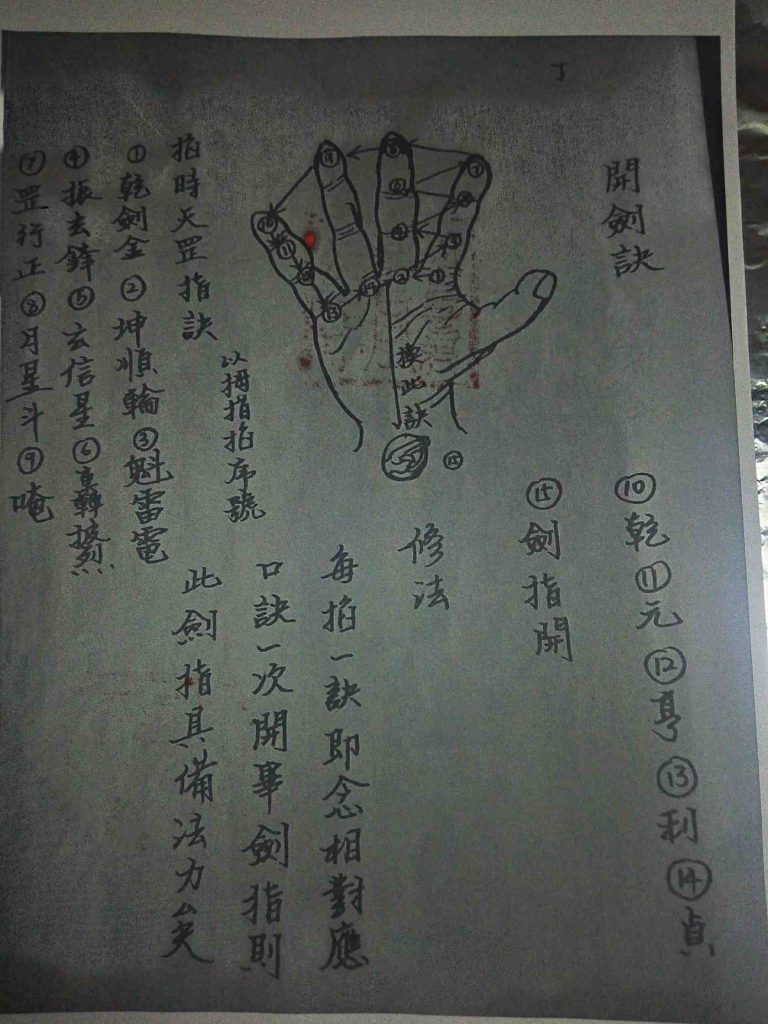 丁
開劍訣
⑩乾⑪元⑫亨⑬利⑭貞
⑮劍指開
修法
每掐一訣即念相對應
口訣一次開畢劍指則
此劍指具備法力矣
換此訣
⑮
以拇指掐序號
掐時天罡指訣
①乾劍金②坤順輪③魁雷電
④振玄鋒⑤玄信星⑥
⑦罡行正⑧月星斗⑨唵